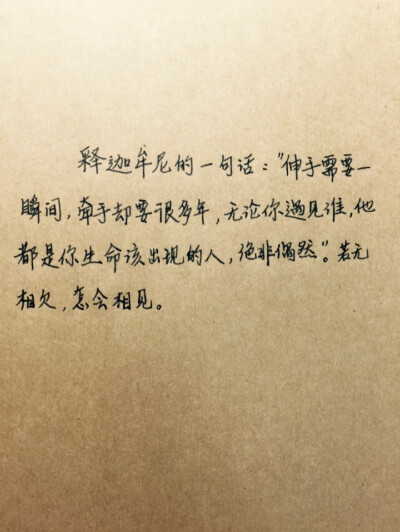 释迦牟尼的一句话："伸手需要一
瞬间，牵手却要很多年，无论你遇见谁，他
都是你生命该出现的人，绝非偶然"。若无
相欠，怎会相见。